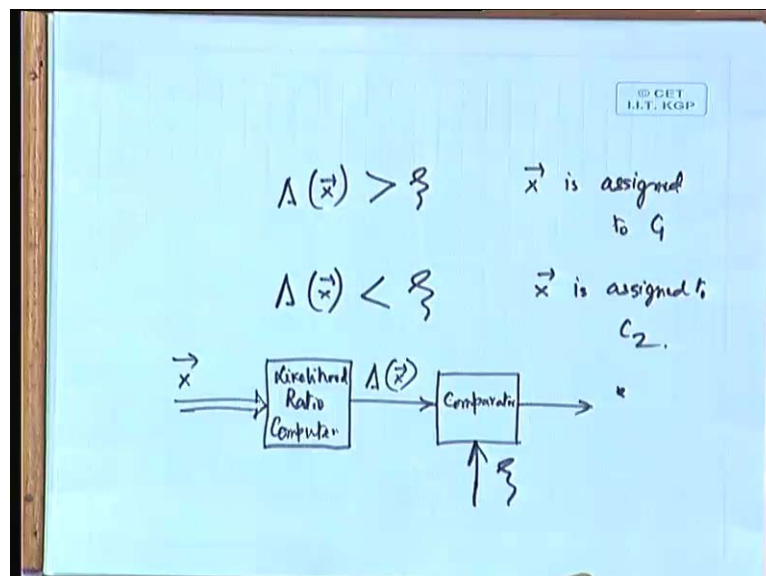 © CET
I.I.T. KGP
Λ(x⃗) > ξ x⃗ is assigned
to C₁
Λ(x⃗) < ξ x⃗ is assigned to
C₂.
x⃗
Likelihood
Ratio
Computer
Λ(x⃗)
Comparator
ξ